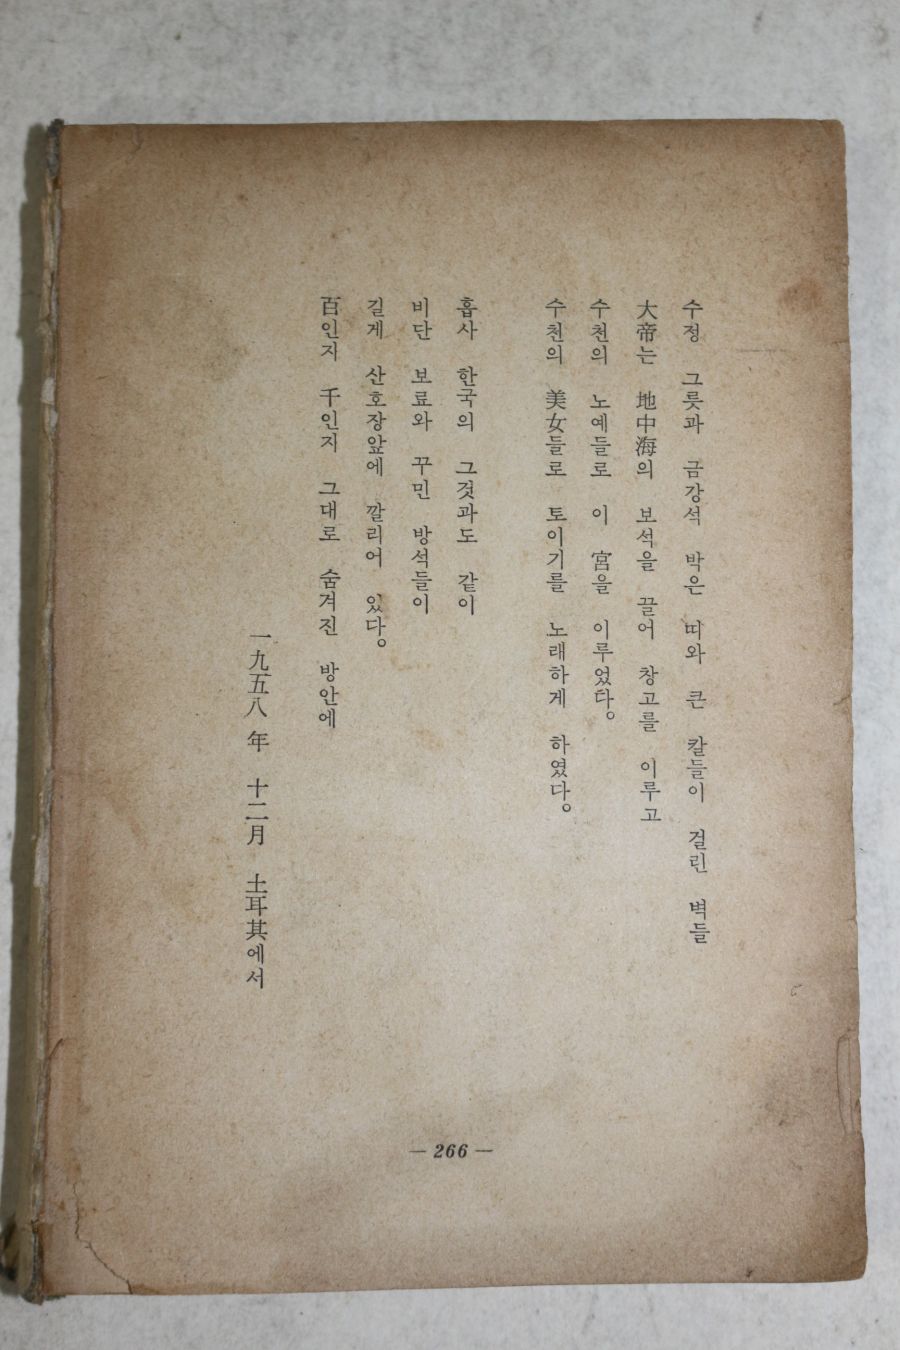 수정 그릇과 금강석 박은 띠와 큰 칼들이 걸린 벽들
大帝는 地中海의 보석을 끌어 창고를 이루고
수천의 노예들로 이 宮을 이루었다。
수천의 美女들로 토이기를 노래하게 하였다。
흡사 한국의 그것과도 같이
비단 보료와 꾸민 방석들이
길게 산호장앞에 깔리어 있다。
百인지 千인지 그대로 숨겨진 방안에
一九五八年 十二月 土耳其에서
— 266 —